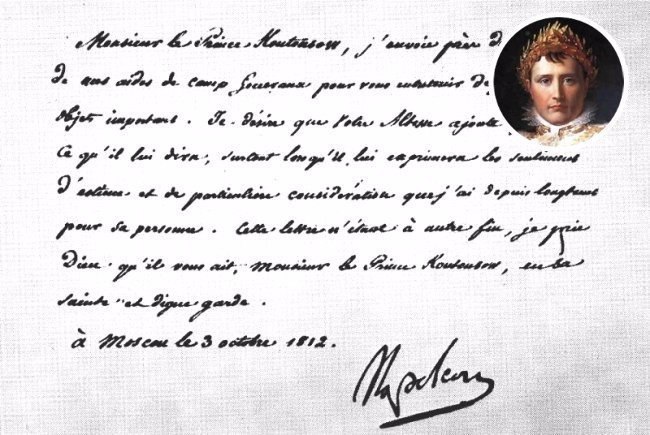 Monsieur le Prince Koutousow, j'envoie près d
de mes aides de camp Généraux pour vous entretenir de
objets important. Je désire que Votre Altesse ajoute
Ce qu'il lui dira, surtout lorsqu'il lui exprimera les sentimens
d'estime et de particulière considération que j'ai depuis longtems
pour sa personne. Cette lettre n'étant à autre fin, je prie
Dieu qu'il vous ait, Monsieur le Prince Koutousow, en sa
sainte et digne garde.
à Moscou le 3 octobre 1812.
Napoleon